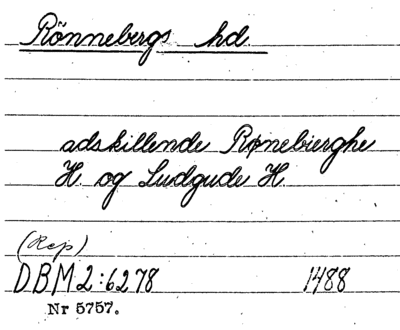 Rönnebergs hd.
adskillende Rønebierghe
H. og Ludgude H.
(Rep)
DBM 2:6278 1488
Nr 5757.